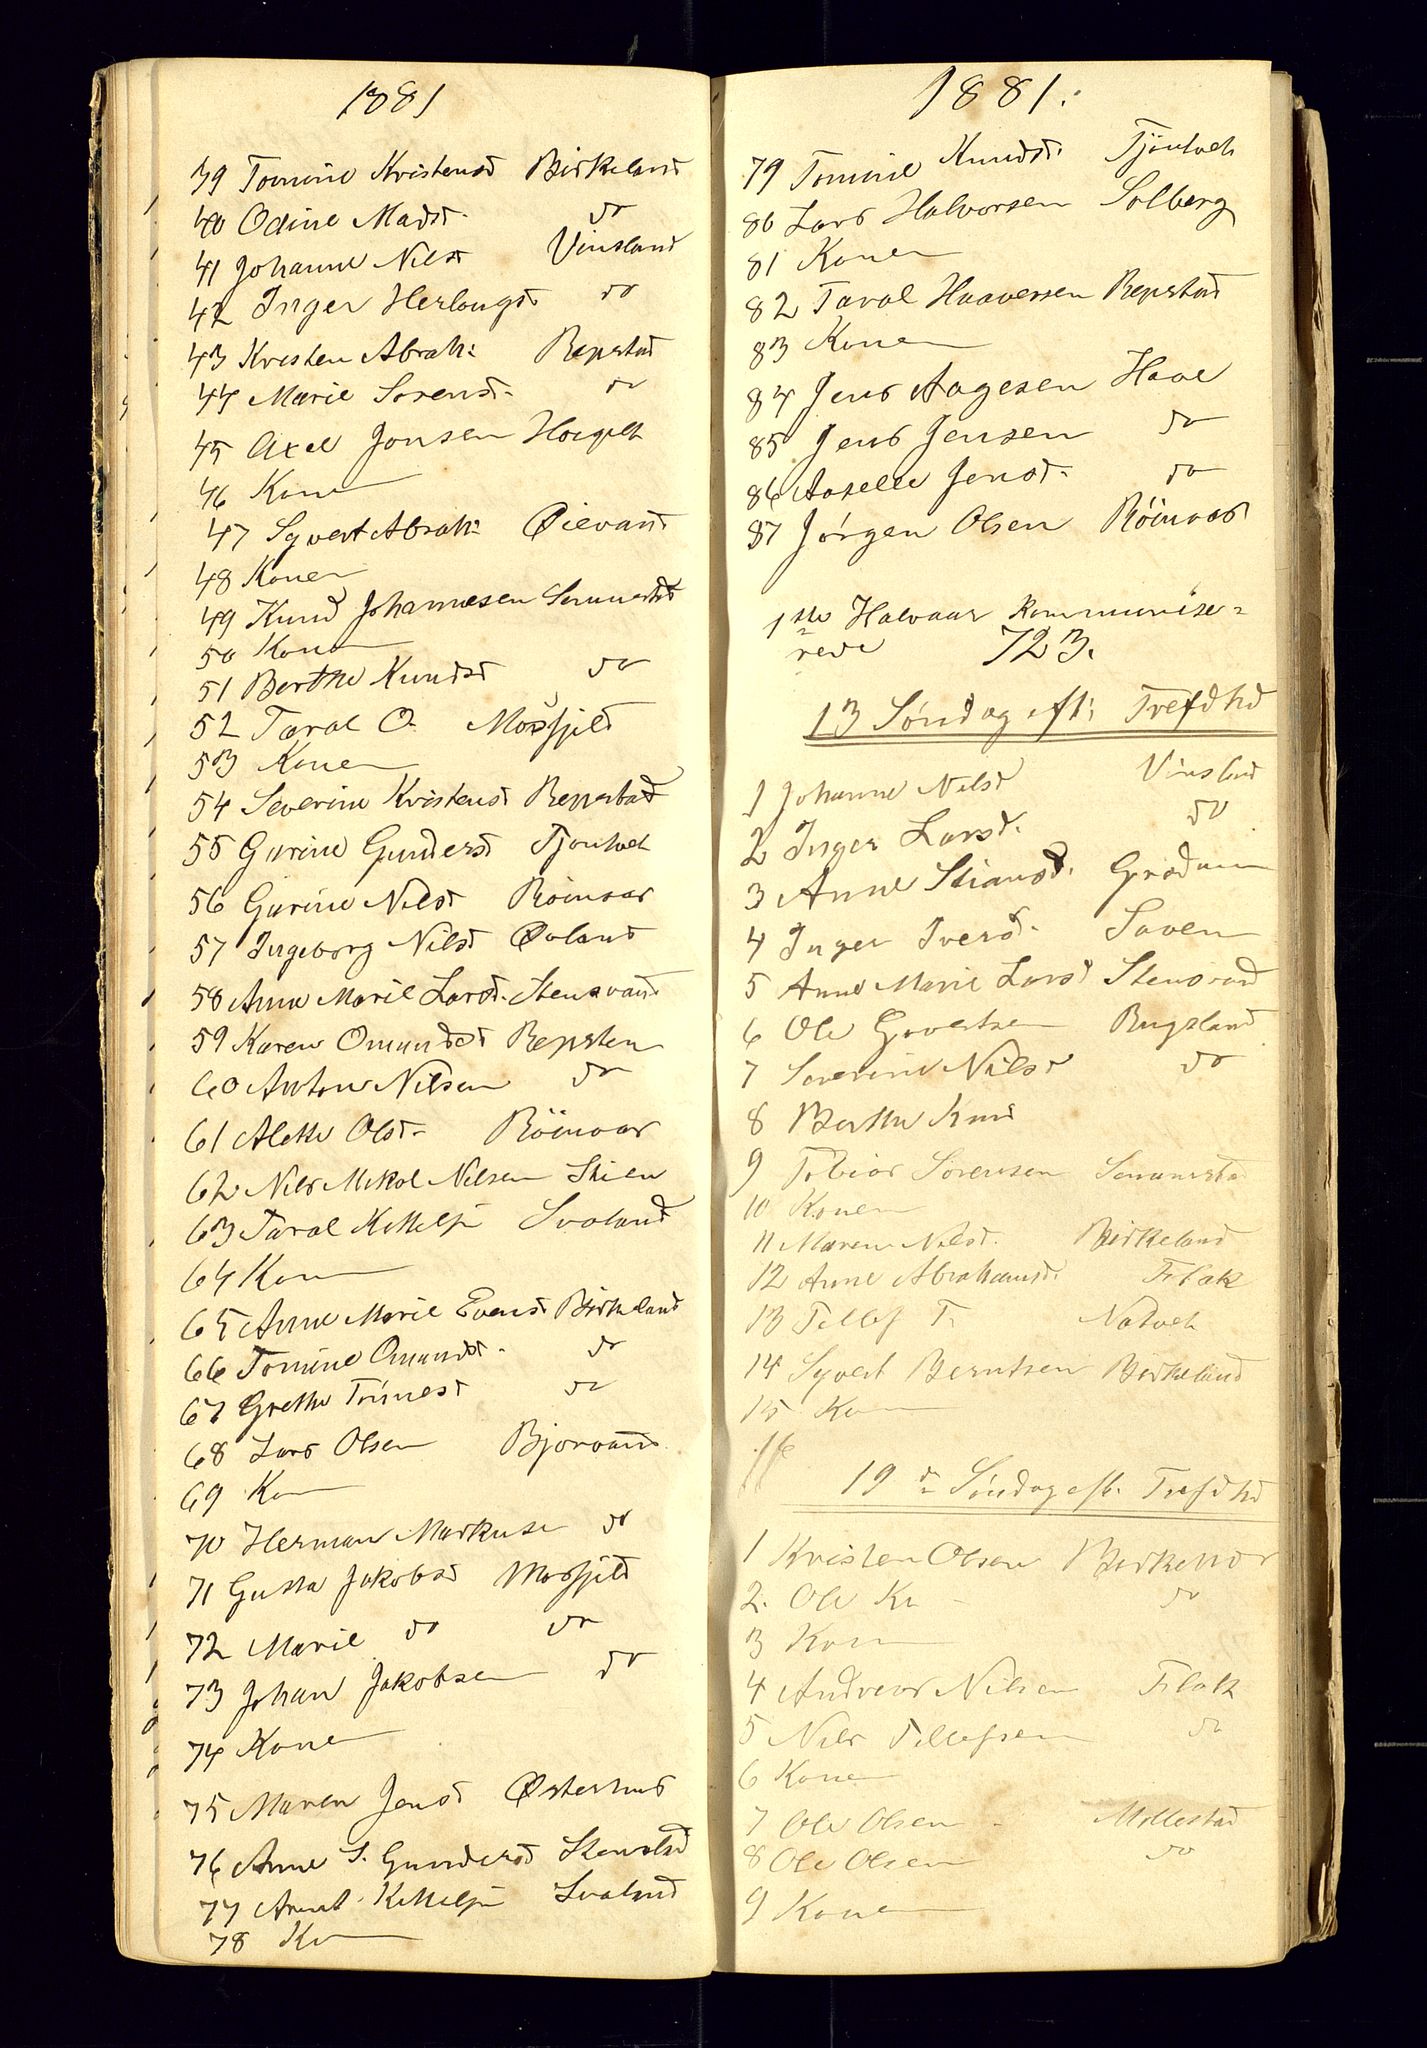 1881
39 Tomine Kristensd Birkeland
40 Odine Madsd. do
41 Johanne Nilsd Vinsland
42 Inger Herlougsd do
43 Kristen Abrah: Repstad
44 Marie Sorensd. do
45 Axel Jonsen
46 Kone
47 Syvert Abrah: Øievand
48 Konen
49 Knud Johannesen
50 Kone
51 Berthe Knudsd do
52 Taral O. Mosfjeld
53 Konen
54 Severine Kristensd Repstad
55 Gurine Gundersd Tjontvet
56 Gurine Nilsd Roinaas
57 Ingeborg Nilsd Øvland
58 Anne Marie Larsd. Stensvand
59 Karen Omundsd Repsten
60 Anton Nilsen do
61 Alette Olsd. Röinaas
62 Nils Mikal Nilsen Skien
63 Taral Kittelsn Svaland
64 Kone
65 Anne Marie Evensd Birkeland
66 Tomine Omundsd. do
67 Grethe Tönnesd do
68 Lars Olsen Bjorvand
69 Kone
70 Herman Markuse do
71 Gusta Jakobsd Mosfjeld
72 Marie do do
73 Johan Jakobsen do
74 Konen
75 Maren Jensd Østerhus
76 Anne S. Gundersd
77 Arent Kittelsn Svaland
78 Kone
1881.
79 Tomine Knudsd. Tjöntveit
80 Lars Halvorsen Solberg
81 Konen
82 Taral Haavorsen Repstad
83 Konen
84 Jens Aagesen Haae
85 Jens Jensen do
86 Aaselle Jensd. do
87 Jørgen Olsen Röinaas
1ste Halvaar kommunise=
rede 723.
13 Søndag eft: Trefdhd
1 Johanne Nilsd Vinsland
2 Inger Larsd. do
3 Anne Stiansd. Grødum
4 Inger Iversd. Saven
5 Anne Marie Larsd Stensvand
6 Ole Govertsen Rugsland
7 Severine Nilsd do
8 Berthe Knud
9 Tobias Sörensen
10 Konen
11 Maren Nilsd. Birkeland
12 Anne Abrahamsd. Flak
13 Tellef T. Natvet
14 Syvert Berntsen Birkeland
15 Kone
16
19de Söndag eft. Trefdhd
1 Kristen Olsen
2. Ole Kr do
3 Kone
4 Andreas Nilsen Flak
5 Nils Tellefsen do
6 Konen
7 Ole Olsen Mollestad
8 Ole Olsen do
9 Konen